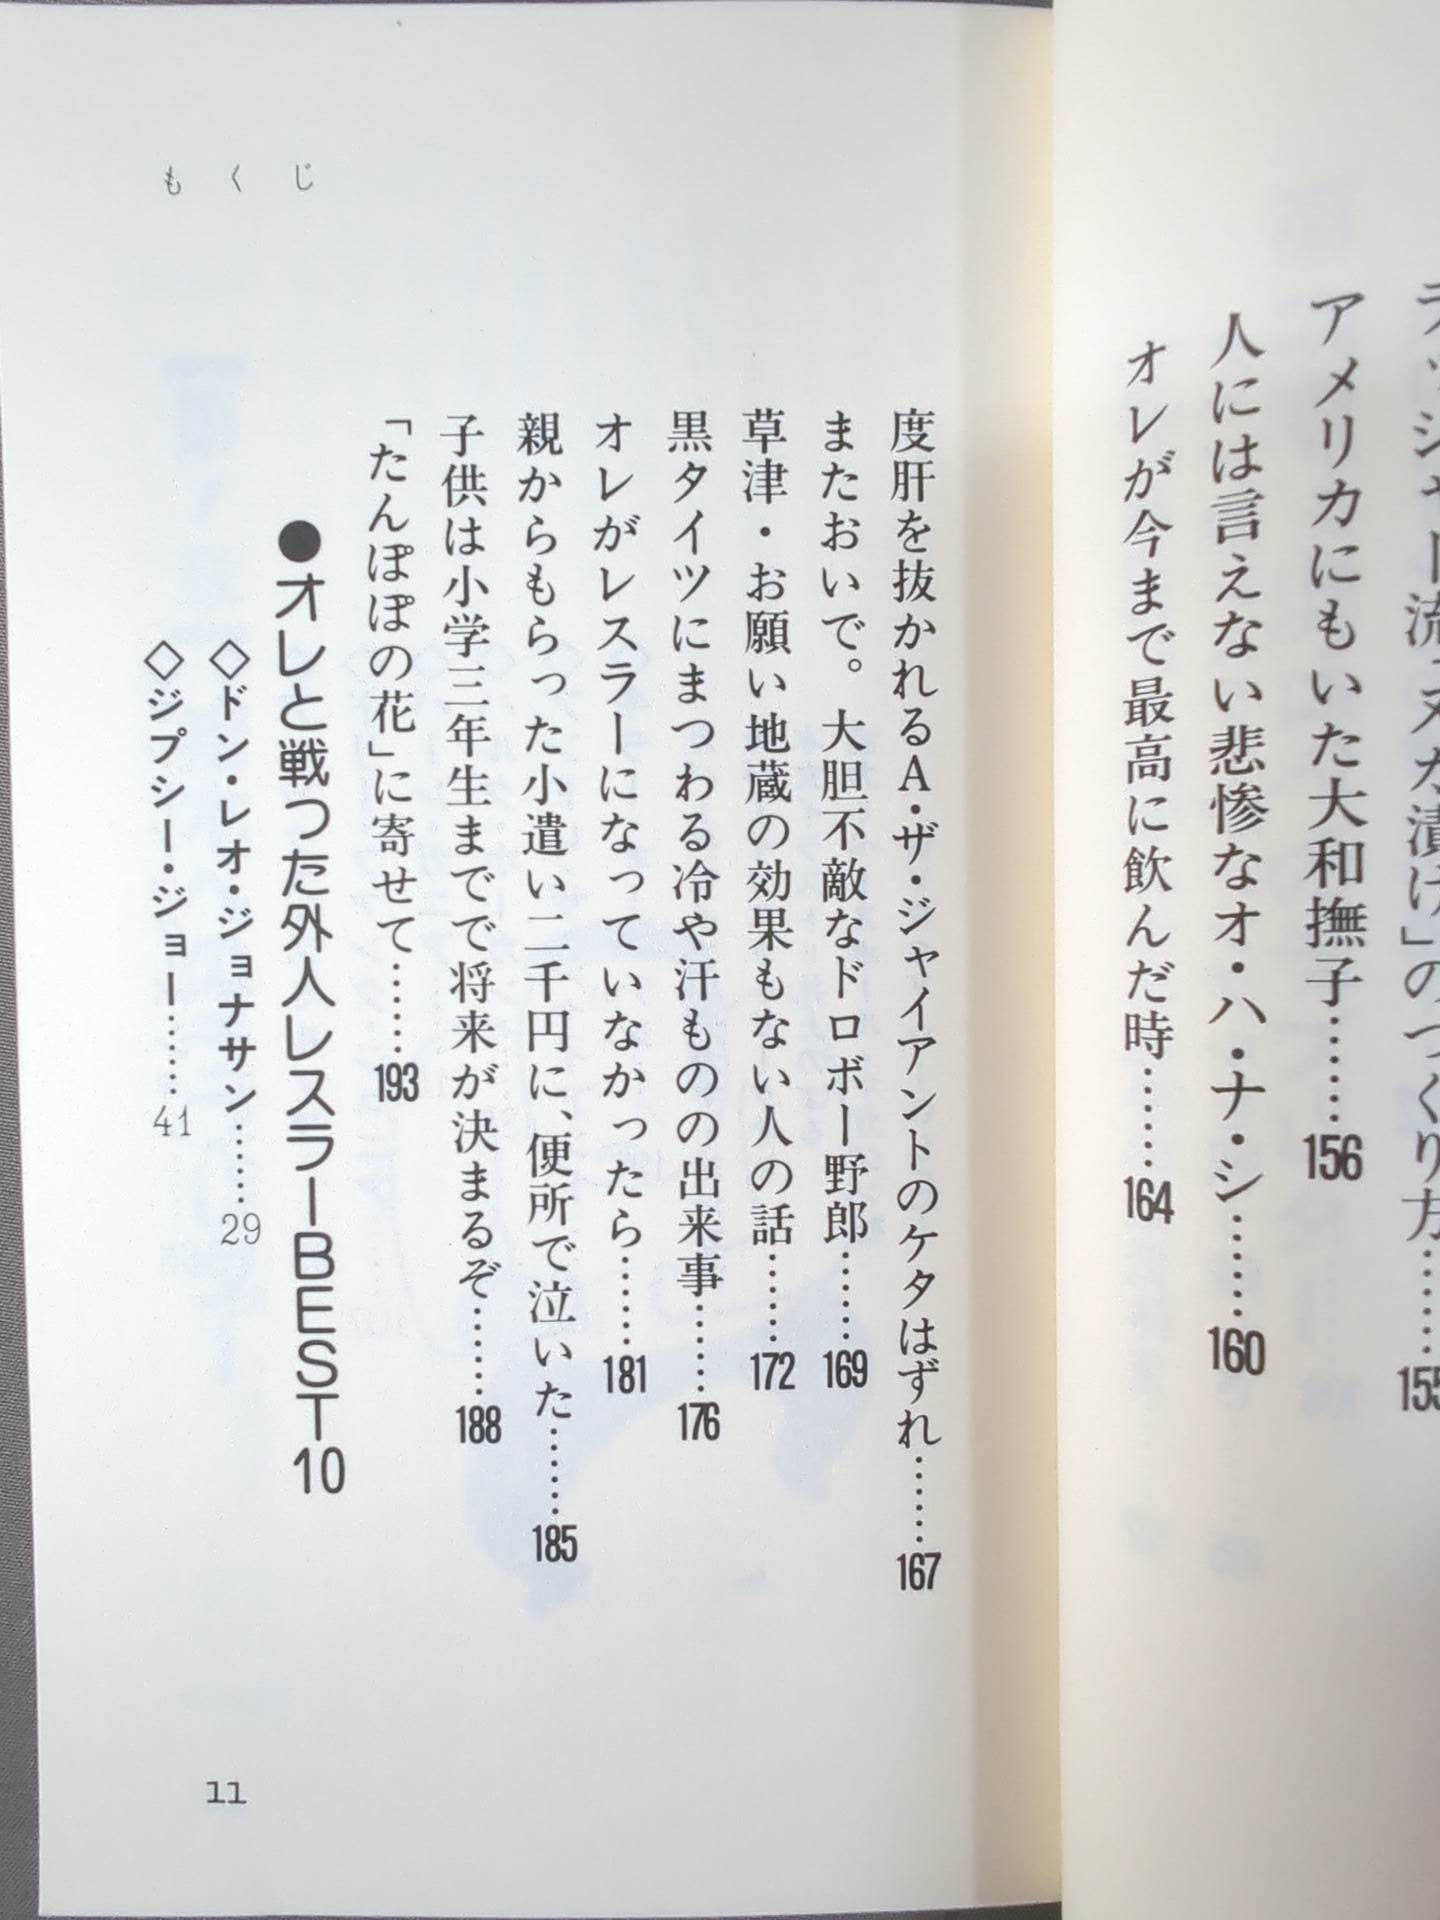 ラッシャー流「ヌカ漬け」のつくり方………155
アメリカにもいた大和撫子………156
人には言えない悲惨なオ・ハ・ナ・シ………160
オレが今まで最高に飲んだ時………164
度肝を抜かれるA・ザ・ジャイアントのケタはずれ………167
またおいで。大胆不敵なドロボー野郎………169
草津・お願い地蔵の効果もない人の話………172
黒タイツにまつわる冷や汗ものの出来事………176
オレがレスラーになっていなかったら………181
親からもらった小遣い二千円に、便所で泣いた………185
子供は小学三年生までで将来が決まるぞ………188
「たんぽぽの花」に寄せて………193
●オレと戦つた外人レスラーBEST10
◇ドン・レオ・ジョナサン……29
◇ジプシー・ジョー……41
もくじ
11